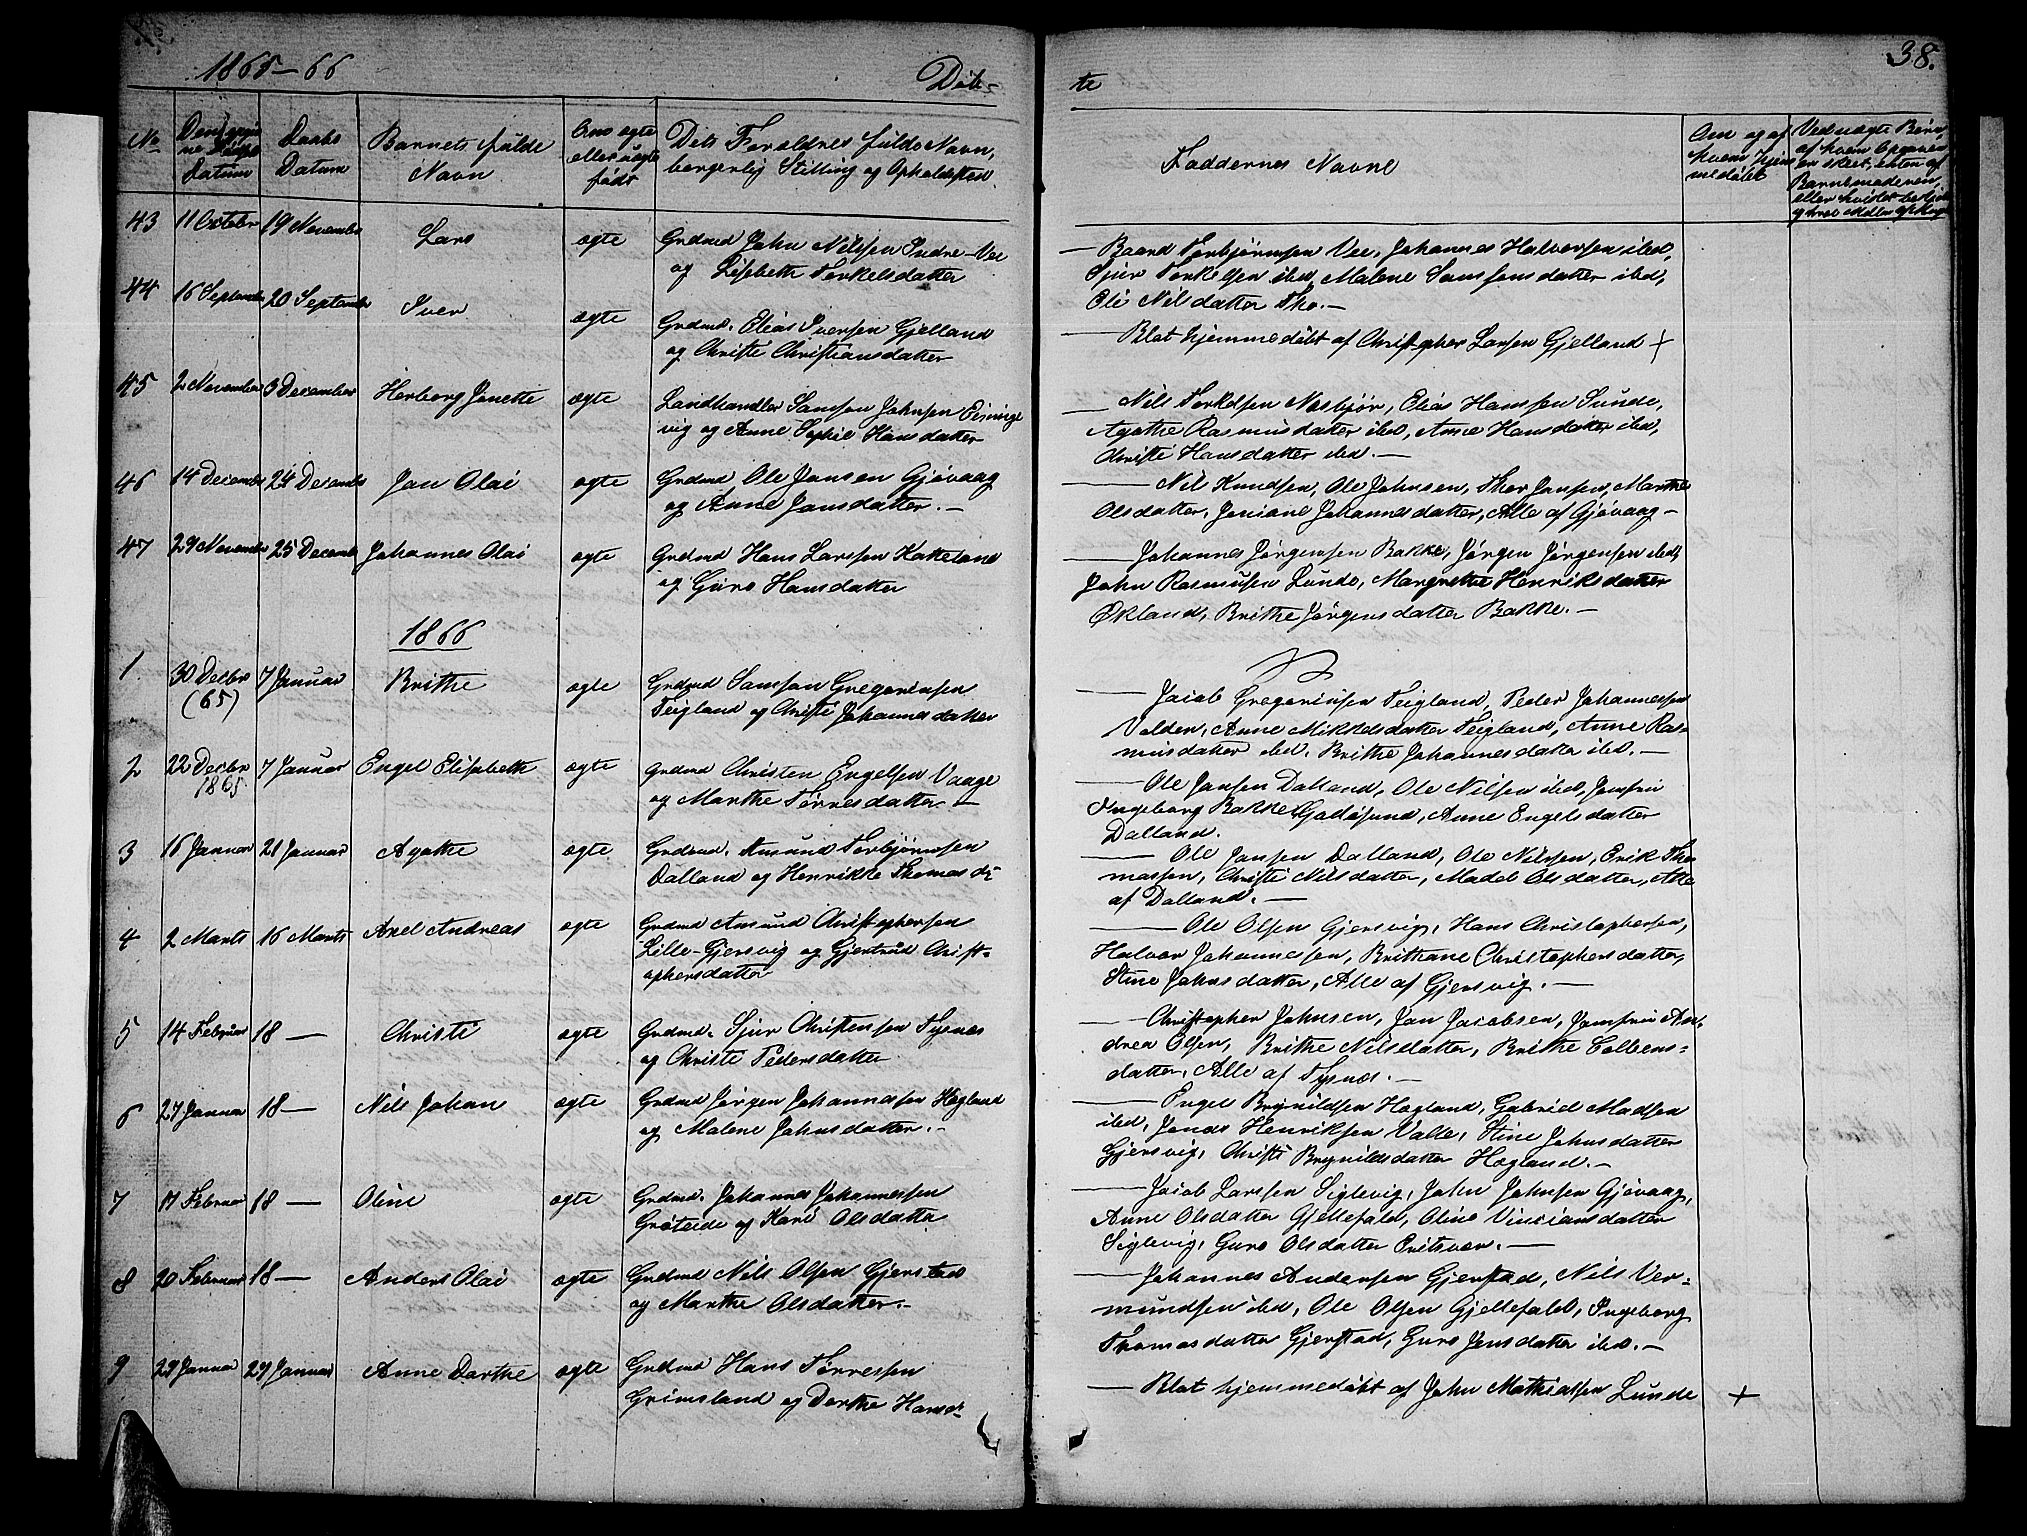 1865-66
Dito-
te
38.
No
Datum
Daabs
Datum
Barnets fulde
Navn
Om ægte
eller uægte
født
Dets Forældres fulde Navn,
borgerlig Stilling og Opholdssted
Faddernes Navne
Om og af
hvem hjem
medøbt
Ved uægte Børn,
af hvem Opgaven
er skeet, enten af
Barnemoderen,
43 11 October 19 November Lars ægte Grdmd John Nilssen Indre-Vee
og Lisbeth Torkelsdatter
- Baard Torbjørnsen Vee, Johannes Halvorsen ibd,
Sjur Torkelsen ibd, Malene Samsonsdatter ibd,
Oli Nilsdatter Tho.-
44 16 September 20 September Iver ægte Grdmd. Elias Iversen Gjelland
og Christi Christiansdatter
- Blot hjemmedøbt af Christopher Larsen Gjelland +
45 2 November 3 December Herborg Janette ægte Landhandler Samson Johnsen Eininge
vig og Anne Sophie Hansdatter
- Nils Torkelsen Nesbjør, Elias Hanssen Sunde,
Agathe Rasmusdatter ibd, Anne Hansdatter ibd,
Christi Hansdatter ibd.-
46 14 December 24 December Jan Olai ægte Grdmd Ole Jansen Gjøvaag
og Anne Jansdatter.-
- Nils Knudsen, Ole Johnsen, Thor Jansen, Marthe
Olsdatter, Johannesdatter, Alle af Gjøvaag-
47 29 November 25 December Johannes Olai ægte Grdmd Hans Larssen Kakeland
og Guro Hansdatter
- Johannes Jørgensen Bakke, Jørgen Jørgensen ibd,
John Rasmussen Lunde, Margrethe Henriksdatter
Økland, Brithe Jørgensdatter Bakke.-
1866
1. 30 Decbr 7 Januar Brithe ægte Grdmd Samson Gregoriusen
(65) Teigland og Christi Johannesdatter
- Jacob Gregoriusen Teigland, Peder Johannessen
Valden, Anne Mikkelsdatter Teigland, Anne Ras-
musdatter ibd. Brithe Johannesdatter ibd.-
2 22 Decbr 7 Januar Engel Elisabeth ægte Grdmd Christen Engelsen Vaage
1865. og Marthe Tørresdatter.-
- Ole Jansen Dalland, Ole Nilsen ibd, Jomfru
Ingeborg Bakke Godøsund, Anne Engelsdatter
Dalland.
3 16 Januar 21 Januar Agathe ægte Grdmd. Amund Torbjørnsen
Dalland og Henrikke Thomasd:
- Ole Jansen Dalland, Ole Nilssen, Erik Tho-
massen, Christi Nilsdatter, Madel Olsdatter, Alle
af Dalland.-
4 2 Marts 16 Marts Axel Andreas ægte Grdmd Amund Christophersen
Lille-Gjersvig og Gjertrud Christ-
ophersdatter
- Ole Olsen Gjersvig, Hans Christophersen,
Halvor Johannessen, Brithane Christophersdatter,
Stine Johnsdatter, Alle af Gjersvig.-
5 14 Februar 18 - Christi ægte Grdmd. Sjur Christensen Tysnes
og Christi Pedersdatter
- Christopher Johnsen, Jan Jacobsen, Jomfru An-
drea Olsen, Brithe Nilsdatter, Brithe Colbens-
datter, Alle af Tysnes.-
6 27 Januar 18 - Nils Johan ægte Grdmd Jørgen Johannessen Hogland
og Malene Johnsdatter.-
- Engel Brynildsen Hogland, Gabriel Madsen
ibd, Jonas Henriksen Valle, Stine Johnsdatter
Gjersvig, Christi Brynildsdatter Hogland.-
7 17 Februar 18 - Oline ægte Grdmd. Johannes Johannessen
Grøteide og Kari Olsdatter
- Jacob Larssen Siglevig, John Johnsen Gjøvaag,
Anne Olsdatter Gjellefald, Oline Vinciansdatter
Siglevig, Guro Olsdatter Oritsvær.-
8 20 Februar 18 - Anders Olai ægte Grdmd Nils Olsen Gjerstad
og Marthe Olsdatter.-
- Johannes Andersen Gjerstad, Nils Ver-
mundsen ibd, Ole Olsen Gjellefald, Ingeborg
Thomasdatter Gjerstad, Guro Jensdatter ibd.-
9 29 Januar 29 Januar Anne Dorthe ægte Grdmd Hans Tørressen
Grimsland og Dorthe Hansd:
- Blot hjemmedøbt af John Mathiassen Lunde +